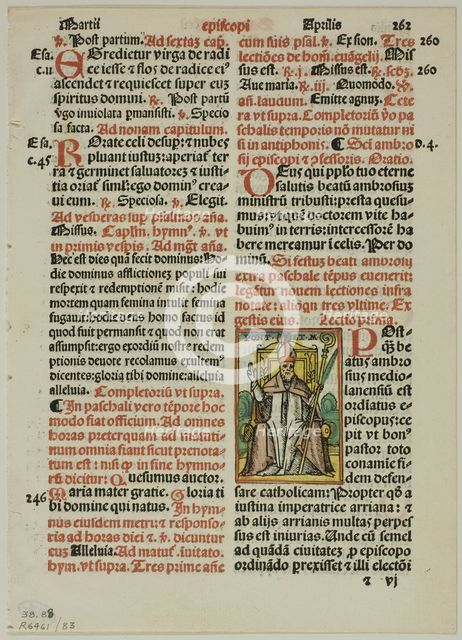 Martii episcopi Aprilis 262
℣. Post partum. Ad sextā cap̄.
Esa. EGredietur virga de radi
c.ii ce iesse et flos de radice ei⁹
ascendet et requiescet super eū
spiritus domini. ℟. Post partū
v̄go inviolata p̄mansisti. ℣. Specio
sa facta. Ad nonam capitulum.
Esa. ROrate celi desup: et nubes
c.45 pluant iustū: aperiat ter
ra et germinet salvatorē et iusti
tia oriat simł: ego domin⁹ crea
ui eum. ℟. Speciosa. ℣. Elegit.
Ad vesperas sup
Missus. Capłm. hymn⁹. ℣. vt
in primis vesp̄is. Ad mḡt añ.
Hec est dies quā fecit dominus: Ho
die dominus afflictionē populi sui
respexit et redemptionē misit: hodie
mortem quam femina intulit femina
fugauit: hodie deus homo factus id
quod fuit permansit et quod non erat
assumpsit: ergo exordiū nostre redem
ptionis deuote recolamus exultem⁹
dicentes: gloria tibi domine: alleluia
alleluia. Completoriū vt supra.
¶ In paschali vero tēpore hoc
modo fiat officium. Ad omnes
horas preterquam ad matuti
num omnia fiant sicut prenota
tum est: nisi qp in fine hymno⁊
dicitur: Quesumus auctor.
246 Maria mater gratie. Gloria ti
bi domine qui natus. In hym-
nus eiusdem metri: et responso
ria ad horas diei et ℣. dicuntur
cum Alleluia. Ad matut̄. inuitato.
hym. vt supra. Tres prime añe
cum suis psal. ℣. Ex sion. Tres 260
lectiōes de hom. euāgelij. Mis
sus est. ℟. j. Missus est. ℟. scd̄ꝫ 260
Aue maria. ℟. iij. Quomodo. ℣.
añ. laudum. Emitte agnū. Cete
ra vt supra. Completoriū v̄o pa
schalis temporis nō mutatur ni
si in antiphonis. ¶ Sci ambro D.4.
sij episcopi et ɔfessoris. Oratio.
DEus qui pplo tuo eterne
salutis beatū ambrosiū
ministrū tribuisti: presta quesu-
mus: vt quē doctorem vite ha
buim⁹ in terris: intercessorē ha
bere mereamur ī celis. Per do
minū. Si festū beati ambrosij
extra paschale tēpus euenerit:
legātur nouem lectiones infra
notate: alioq̄n tres vltime. Ex
gestis eius. Lectio prima.
POst-
q̄ꝫ be
atus ambro
sius medio-
lanensiū est
ordīatus e-
piscopus: ce
pit vt bon⁹
pastor toto
conamīe fi-
dem defen-
sare catholicam: Propter qd̄ a
iustina imperatrice arriana: et
ab alijs arrianis multas perpes
sus est iniurias. Unde cū semel
ad quādā ciuitatē p episcopo
ordinādo prexisset et illi electōi
z vj
38.88
R6461/83